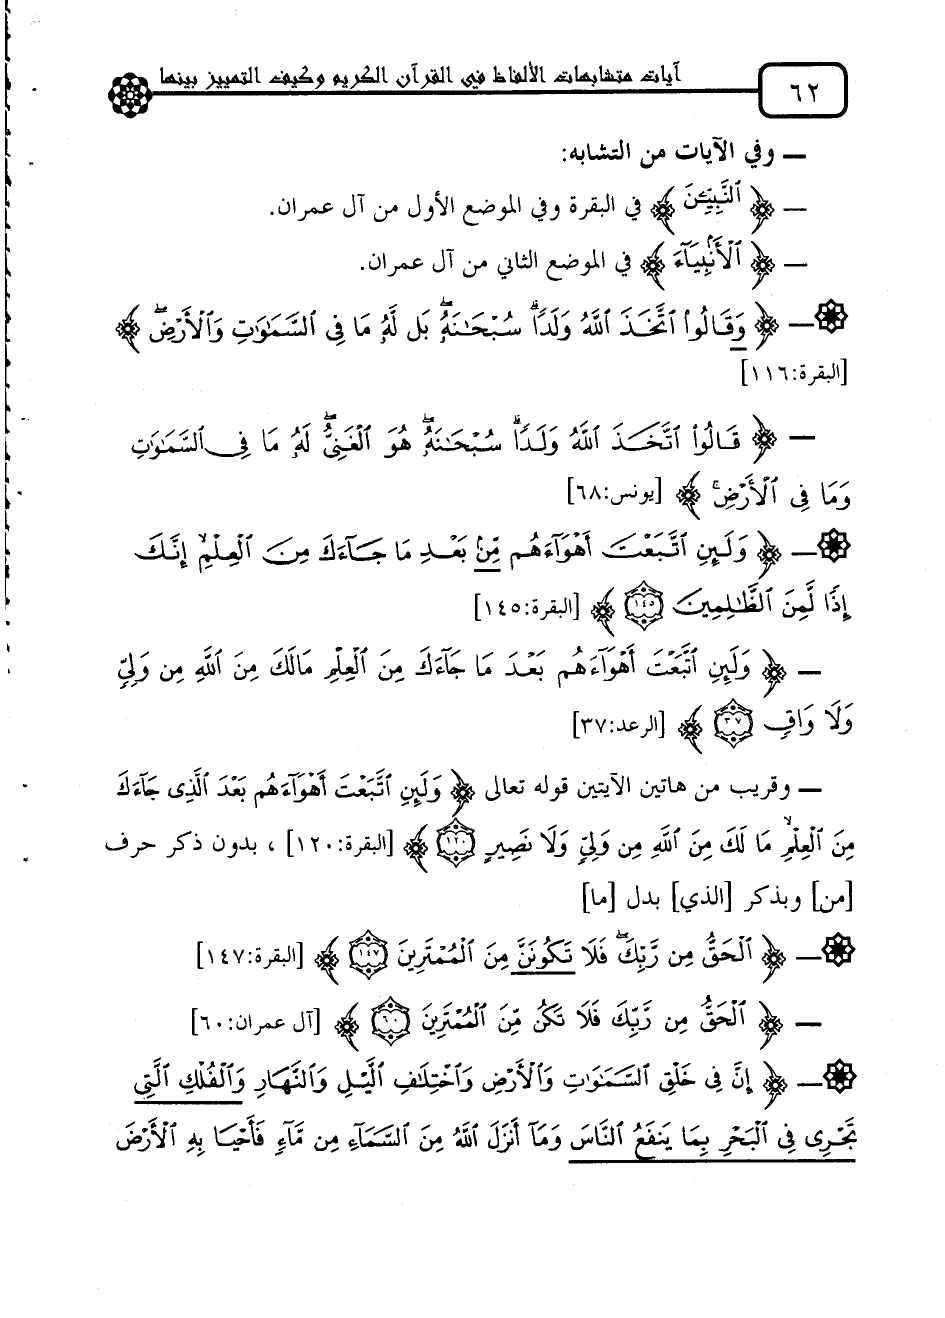 آيات متشابهات الألفاظ في القرآن الكريم وكيف التمييز بينها
٦٢
— وفي الآيات من التشابه:
— ﴿ ٱلنَّبِيِّـۧنَ ﴾ في البقرة وفي الموضع الأول من آل عمران.
— ﴿ ٱلْأَنۢبِيَآءَ ﴾ في الموضع الثاني من آل عمران.
— ﴿ وَقَالُوا۟ ٱتَّخَذَ ٱللَّهُ وَلَدًا ۗ سُبْحَـٰنَهُۥ ۖ بَل لَّهُۥ مَا فِى ٱلسَّمَـٰوَٰتِ وَٱلْأَرْضِ ۖ ﴾
[البقرة:١١٦]
— ﴿ قَالُوا۟ ٱتَّخَذَ ٱللَّهُ وَلَدًا ۗ سُبْحَـٰنَهُۥ ۖ هُوَ ٱلْغَنِىُّ ۖ لَهُۥ مَا فِى ٱلسَّمَـٰوَٰتِ
وَمَا فِى ٱلْأَرْضِ ۚ ﴾ [يونس:٦٨]
— ﴿ وَلَئِنِ ٱتَّبَعْتَ أَهْوَآءَهُم مِّنۢ بَعْدِ مَا جَآءَكَ مِنَ ٱلْعِلْمِ ۙ إِنَّكَ
إِذًا لَّمِنَ ٱلظَّـٰلِمِينَ ١٤٥ ﴾ [البقرة:١٤٥]
— ﴿ وَلَئِنِ ٱتَّبَعْتَ أَهْوَآءَهُم بَعْدَ مَا جَآءَكَ مِنَ ٱلْعِلْمِ مَالَكَ مِنَ ٱللَّهِ مِن وَلِىٍّ
وَلَا وَاقٍ ٣٧ ﴾ [الرعد:٣٧]
— وقريب من هاتين الآيتين قوله تعالى ﴿ وَلَئِنِ ٱتَّبَعْتَ أَهْوَآءَهُم بَعْدَ ٱلَّذِى جَآءَكَ
مِنَ ٱلْعِلْمِ ۙ مَا لَكَ مِنَ ٱللَّهِ مِن وَلِىٍّ وَلَا نَصِيرٍ ١٢٠ ﴾ [البقرة:١٢٠] ، بدون ذكر حرف
[من] وبذكر [الذي] بدل [ما]
— ﴿ ٱلْحَقُّ مِن رَّبِّكَ ۖ فَلَا تَكُونَنَّ مِنَ ٱلْمُمْتَرِينَ ١٤٧ ﴾ [البقرة:١٤٧]
— ﴿ ٱلْحَقُّ مِن رَّبِّكَ فَلَا تَكُن مِّنَ ٱلْمُمْتَرِينَ ٦٠ ﴾ [آل عمران:٦٠]
— ﴿ إِنَّ فِى خَلْقِ ٱلسَّمَـٰوَٰتِ وَٱلْأَرْضِ وَٱخْتِلَـٰفِ ٱلَّيْلِ وَٱلنَّهَارِ وَٱلْفُلْكِ ٱلَّتِى
تَجْرِى فِى ٱلْبَحْرِ بِمَا يَنفَعُ ٱلنَّاسَ وَمَآ أَنزَلَ ٱللَّهُ مِنَ ٱلسَّمَآءِ مِن مَّآءٍ فَأَحْيَا بِهِ ٱلْأَرْضَ